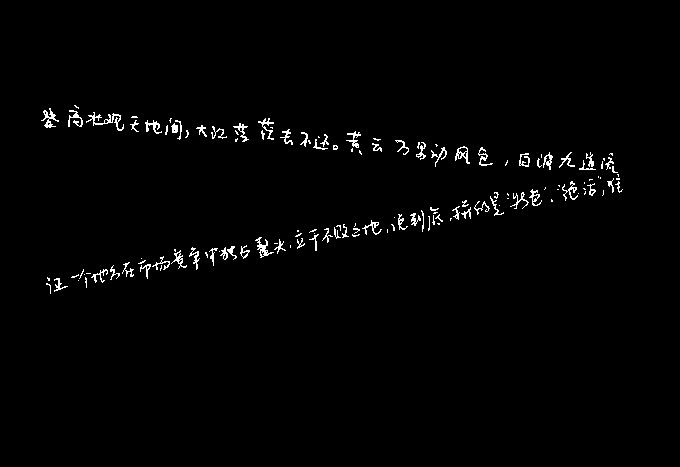 登高壮观天地间，大江茫茫去不还。黄云万里动风色，白波九道流
证一个地方在市场竞争中独占鳌头、立于不败之地，说到底，拼的是“特色”、“绝活”，谁